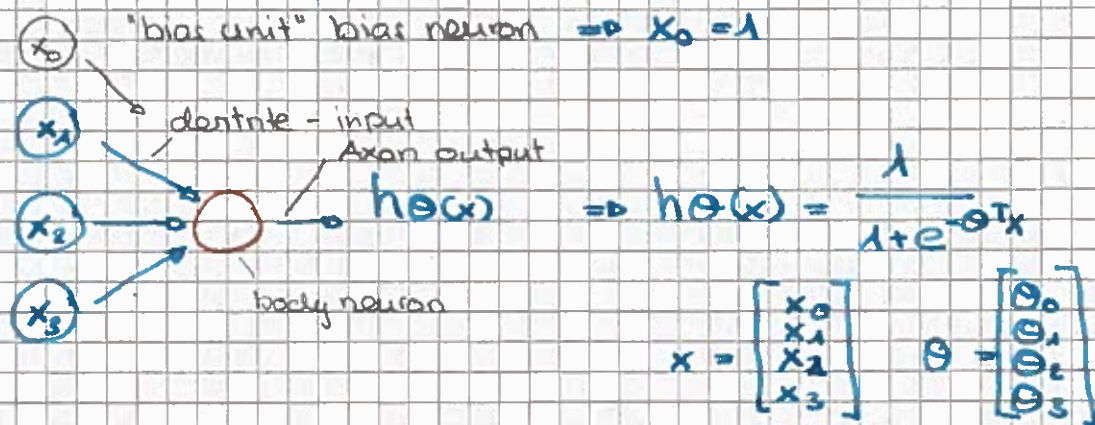 x₀ "bias unit" bias neuron => x₀ = 1
x₁ dentrite - input
Axon output
x₂ hθ(x) => hθ(x) = 1 / 1 + e^-θᵀx
body neuron
x₃
x = [x₀ x₁ x₂ x₃] θ = [θ₀ θ₁ θ₂ θ₃]